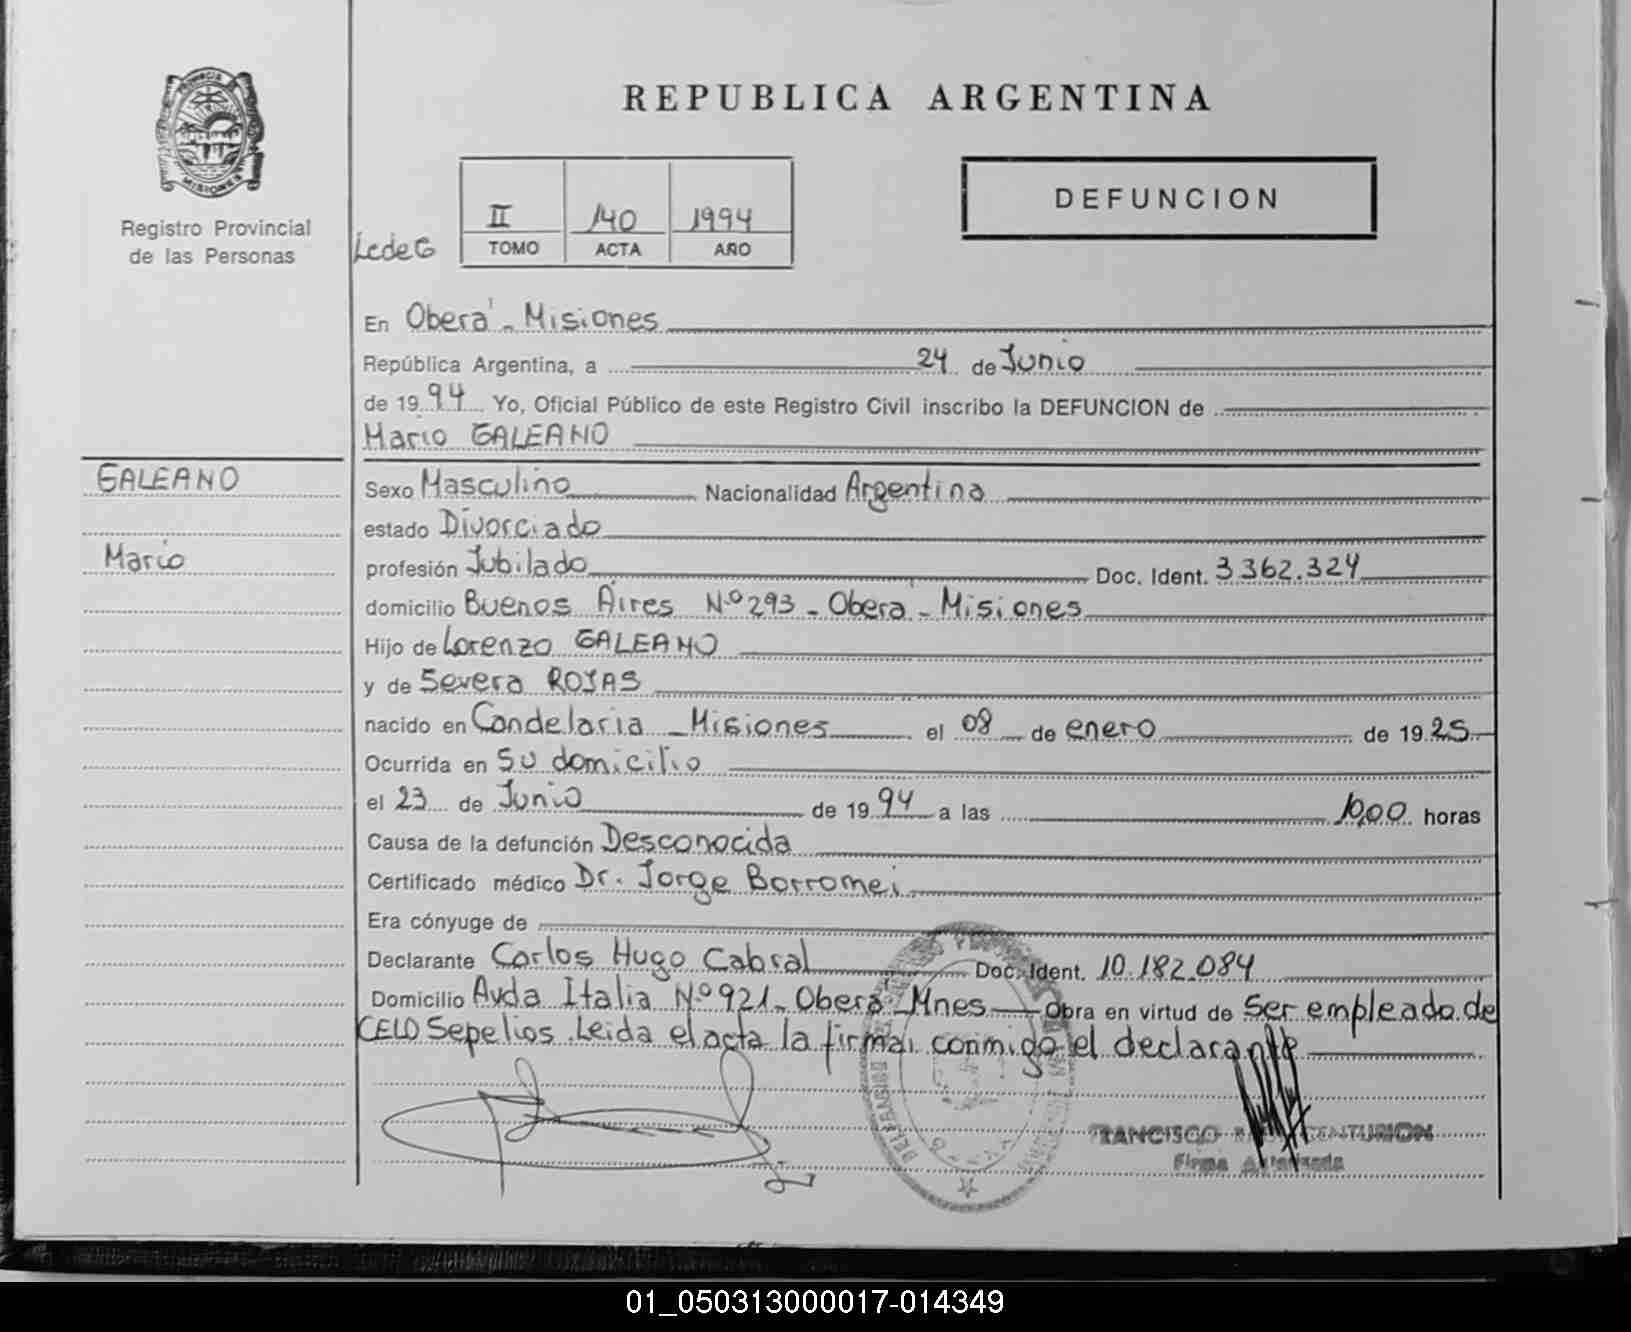 PROVINCIA
MISIONES
Registro Provincial
de las Personas
REPUBLICA ARGENTINA
II 140 1994
TOMO ACTA AÑO
DEFUNCION
En Oberá - Misiones
República Argentina, a 24 de Junio
de 19 94 Yo, Oficial Público de este Registro Civil inscribo la DEFUNCION de
Mario GALEANO
GALEANO
Mario
Sexo Masculino Nacionalidad Argentina
estado Divorciado
profesión Jubilado Doc. Ident. 3362.324
domicilio Buenos Aires Nº 293 - Oberá - Misiones
Hijo de Lorenzo GALEANO
y de Severa ROJAS
nacido en Candelaria - Misiones el 08 de enero de 19 25
Ocurrida en Su domicilio
el 23 de Junio de 19 94 a las 10,00 horas
Causa de la defunción Desconocida
Certificado médico Dr. Jorge Borromei
Era cónyuge de
Declarante Carlos Hugo Cabral Doc. Ident. 10.182.084
Domicilio Avda Italia Nº 921 - Oberá - Mnes Obra en virtud de Ser empleado de
CELO Sepelios. Leida el acta la firma conmigo el declarante
FRANCISCO CENTURION
Firma Autorizada
01_050313000017-014349